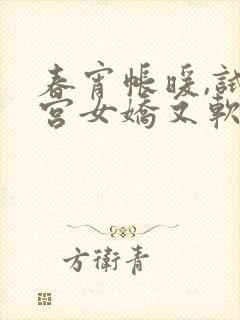 春宵帳暖,試
宮女嬌又軟
方衛青